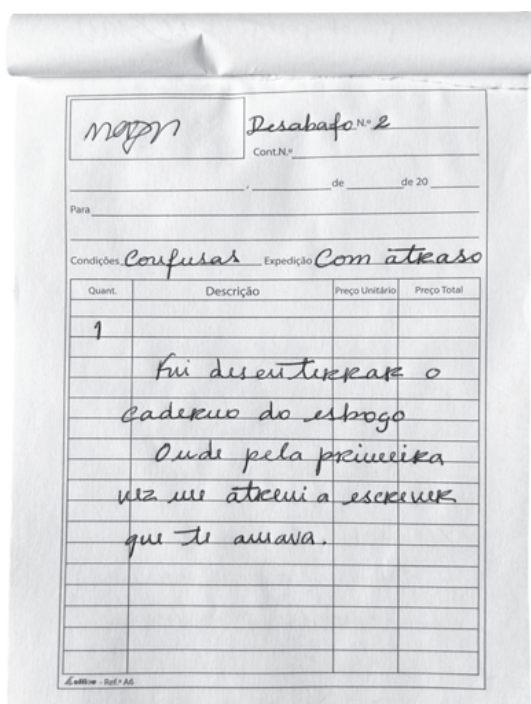 Desabafo N.º 2
Cont.N.º
, de de 20
Para
Condições Confusas Expedição Com atraso
Quant. Descrição Preço Unitário Preço Total
1
Fui desenterrar o
caderno do esboço
Onde pela primeira
vez me atrevi a escrever
que te amava.
Ref.ª A6